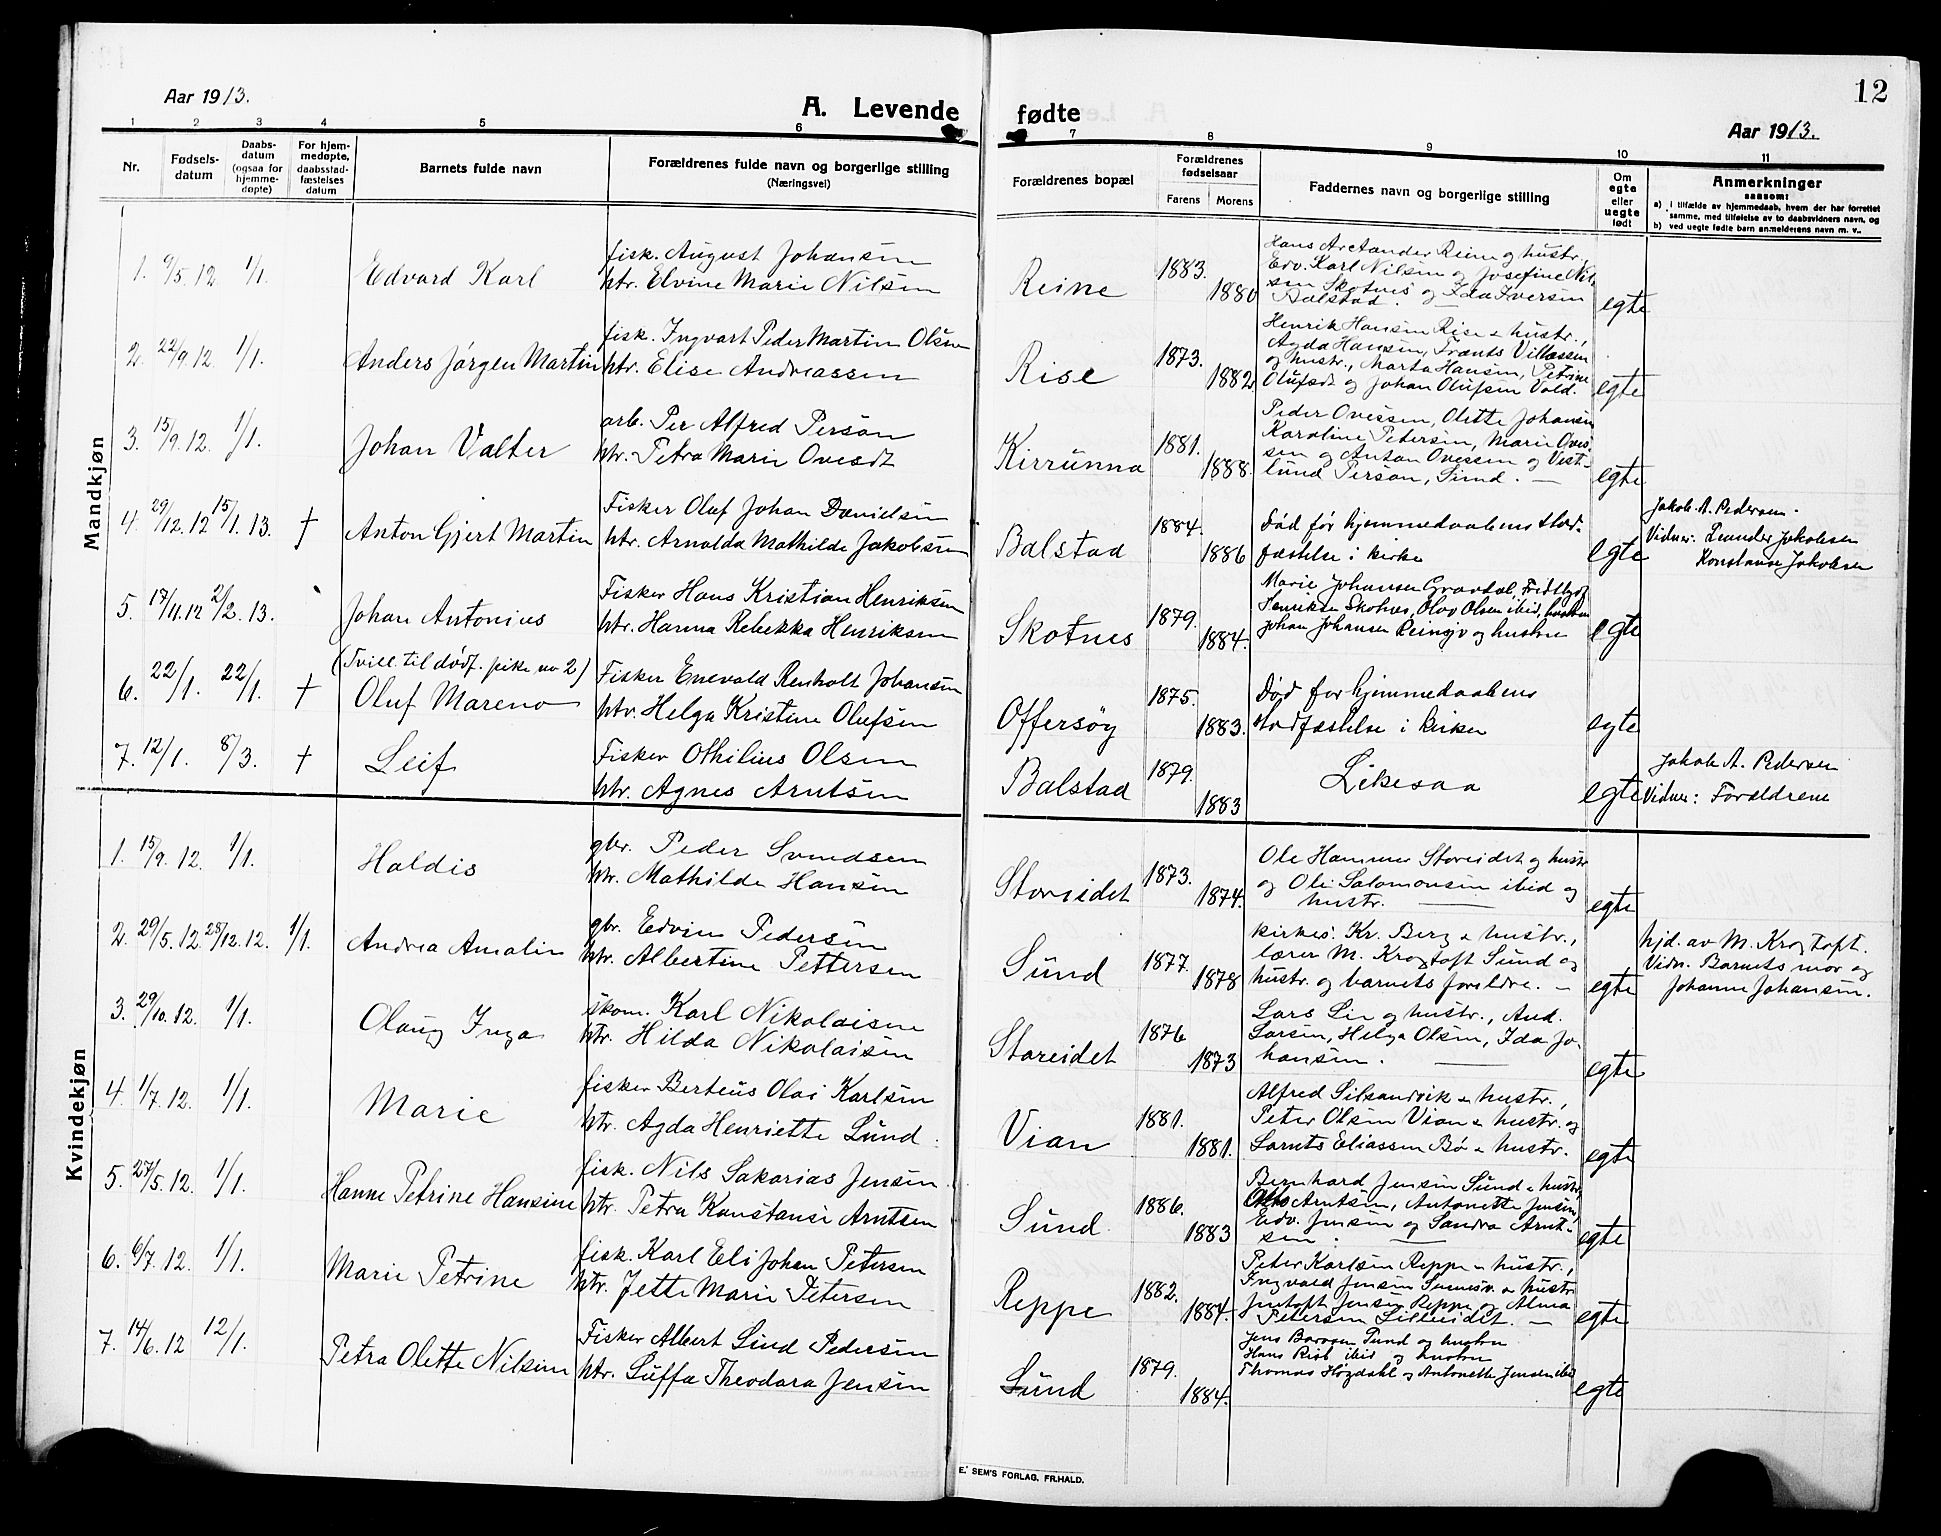 12
Aar 1913.
A. Levende fødte
Aar 1913.
1 2 3 4 5 6 7 8 9 10 11
Nr.
Fødsels-
datum
Daabs-
datum
(ogsaa for
hjemme-
døpte)
For hjem-
medøpte,
daabsstad-
fæstelses
datum
Barnets fulde navn
Forældrenes fulde navn og borgerlige stilling
(Næringsvei)
Forældrenes bopæl
Forældrenes
fødselsaar
Farens Morens
Faddernes navn og borgerlige stilling
Om
egte
eller
uegte
født
Anmerkninger
saasom:
a) i tilfælde av hjemmedaab, hvem der har forrettet
samme, med tilføielse av to daabsvidners navn, og
b) ved uegte fødte barn anmelderens navn m. v..
Mandkjøn
1. 9/5. 12 1/1. Edvard Karl
fisk. August Johansen
htr. Elvine Marie Nilsen
Reine 1883. 1880
Hans Arctander Reine og hustr.,
Edv. Karl Nilsen og Josefine Nil-
sen Skotnes og Ida Iversen
Balstad. —
egte
2. 22/9. 12. 1/1. Anders Jørgen Martin
fisk. Ingvart Peder Martin Olsen
htr. Elise Andreassen
Rise 1873. 1882.
Henrik Hansen Rise & hustr.,
Agda Hansen, Frants Villassen
og hustr., Marta Hansen, Petrine
Olufsdt og Johan Olufsen Vold.
egte
3. 15/9. 12. 1/1. Johan Valter
arb. Per Alfred Person
htr. Petra Marie Ovesdt
Kirrunna 1881. 1888.
Peder Ovessen, Olette Johansen
Karoline Petersen, Marie Oves-
sen og Anton Ovessen og Vest-
lund Person, Sund. —
egte
4. 29/12. 12 15/1. 13. † Anton Gjert Martin
Fisker Oluf Johan Davidsen
htr. Arnolda Mathilde Jakobsen
Balstad 1884. 1886
Død før hjemmedaabens stad-
fæstelse i kirke
egte
Jakob A. Pedersen.
Vidner: Leander Jakobsen
Konstanse Jakobsen
5. 17/11. 12 2/2. 13. Johan Antonius
Fisker Hans Kristian Henriksen
htr. Hanna Rebekka Henriksen
Skotnes 1879. 1884.
Marie Johansen Gravdal,
Henriksen Skotnes, Olav Olsen ibid,
Johan Johansen Reinsjv og hustru
egte
(Tvill. til dødf. pike no 2)
6. 22/1. 22/1. † Oluf Mareno
Fisker Enevald Renholt Johansen
htr. Helga Kristine Olufsen
Offersøy 1875. 1883.
Død før hjemmedaabens
stadfæstelse i kirken
egte
7. 12/1. 8/3. † Leif
Fisker Othilius Olsen
htr. Agnes Arntsen
Balstad 1879. 1883
Likesaa
egte
Jakob A. Pedersen
Vidner: Forældrene
Kvindekjøn
1. 15/9. 12. 1/1. Haldis
gbr. Peder Svendsen
htr. Mathilde Hansen
Storeidet 1873. 1874.
Ole Hammer Storeidet og hustr
og Ole Salomonsen ibid og
hustr. —
egte
2. 29/5. 12. 28/12. 12. 1/1. Andrea Amalie
gbr. Edvin Pedersen
htr. Albertine Pettersen
Sund 1877. 1878
kirkes. Kr. Berg & hustr.,
lærer M. Krogtoft Sund og
hustr. og barnets foreldre. —
egte
hjd. av M. Krogtoft.
Vidn. Barnets mor og
Johanne Johansen.
3. 29/10. 12. 1/1. Olaug Inga
skom. Karl Nikolaisen
htr. Hilda Nikolaisen
Storeidet 1876 1873
Lars Lie og hustr., And.
Larsen, Helga Olsen, Ida Jo-
hansen. —
egte
4. 1/7. 12. 1/1. Marie
fisker Berteus Olai Karlsen
htr. Agda Henriette Lund.
Vian 1881. 1881.
Alfred Silsandvik & hustr.,
Peter Olsen Vian & hustr. og
Larnts Eliassen Bø & hustr.
egte
5. 27/5. 12. 1/1. Hanne Petrine Hansine
fisk. Nils Sakarias Jensen.
htr. Petra Konstanse Arntsen
Sund. 1886. 1883
Bernhard Jensen Sund & hustr,
Otto Arntsen, Antonette Jensen,
Edv. Jensen og Sandra Arnt-
sen. —
egte
6. 6/7. 12. 1/1. Marie Petrine
fisk. Karl Eli Johan Petersen
htr. Jette Marie Petersen
Reppe 1882. 1884.
Peter Karlsen Reppe & hustr.,
Ingvald Jensen & hustr
Jentoft Jensen Reppe og Alma
Petersen Lilleeidet. —
egte
7. 14/6. 12 12/1. Petra Olette Nilsine
Fisker Albert Lind Pedersen
htr. Luffa Theodora Jensen
Sund 1879. 1884.
Jens Sund og hustru
Hans Risb ibid og hustru
Thomas Høgdahl og Antonette Jensen ibid
egte
E. SEM'S FORLAG, FR.HALD.